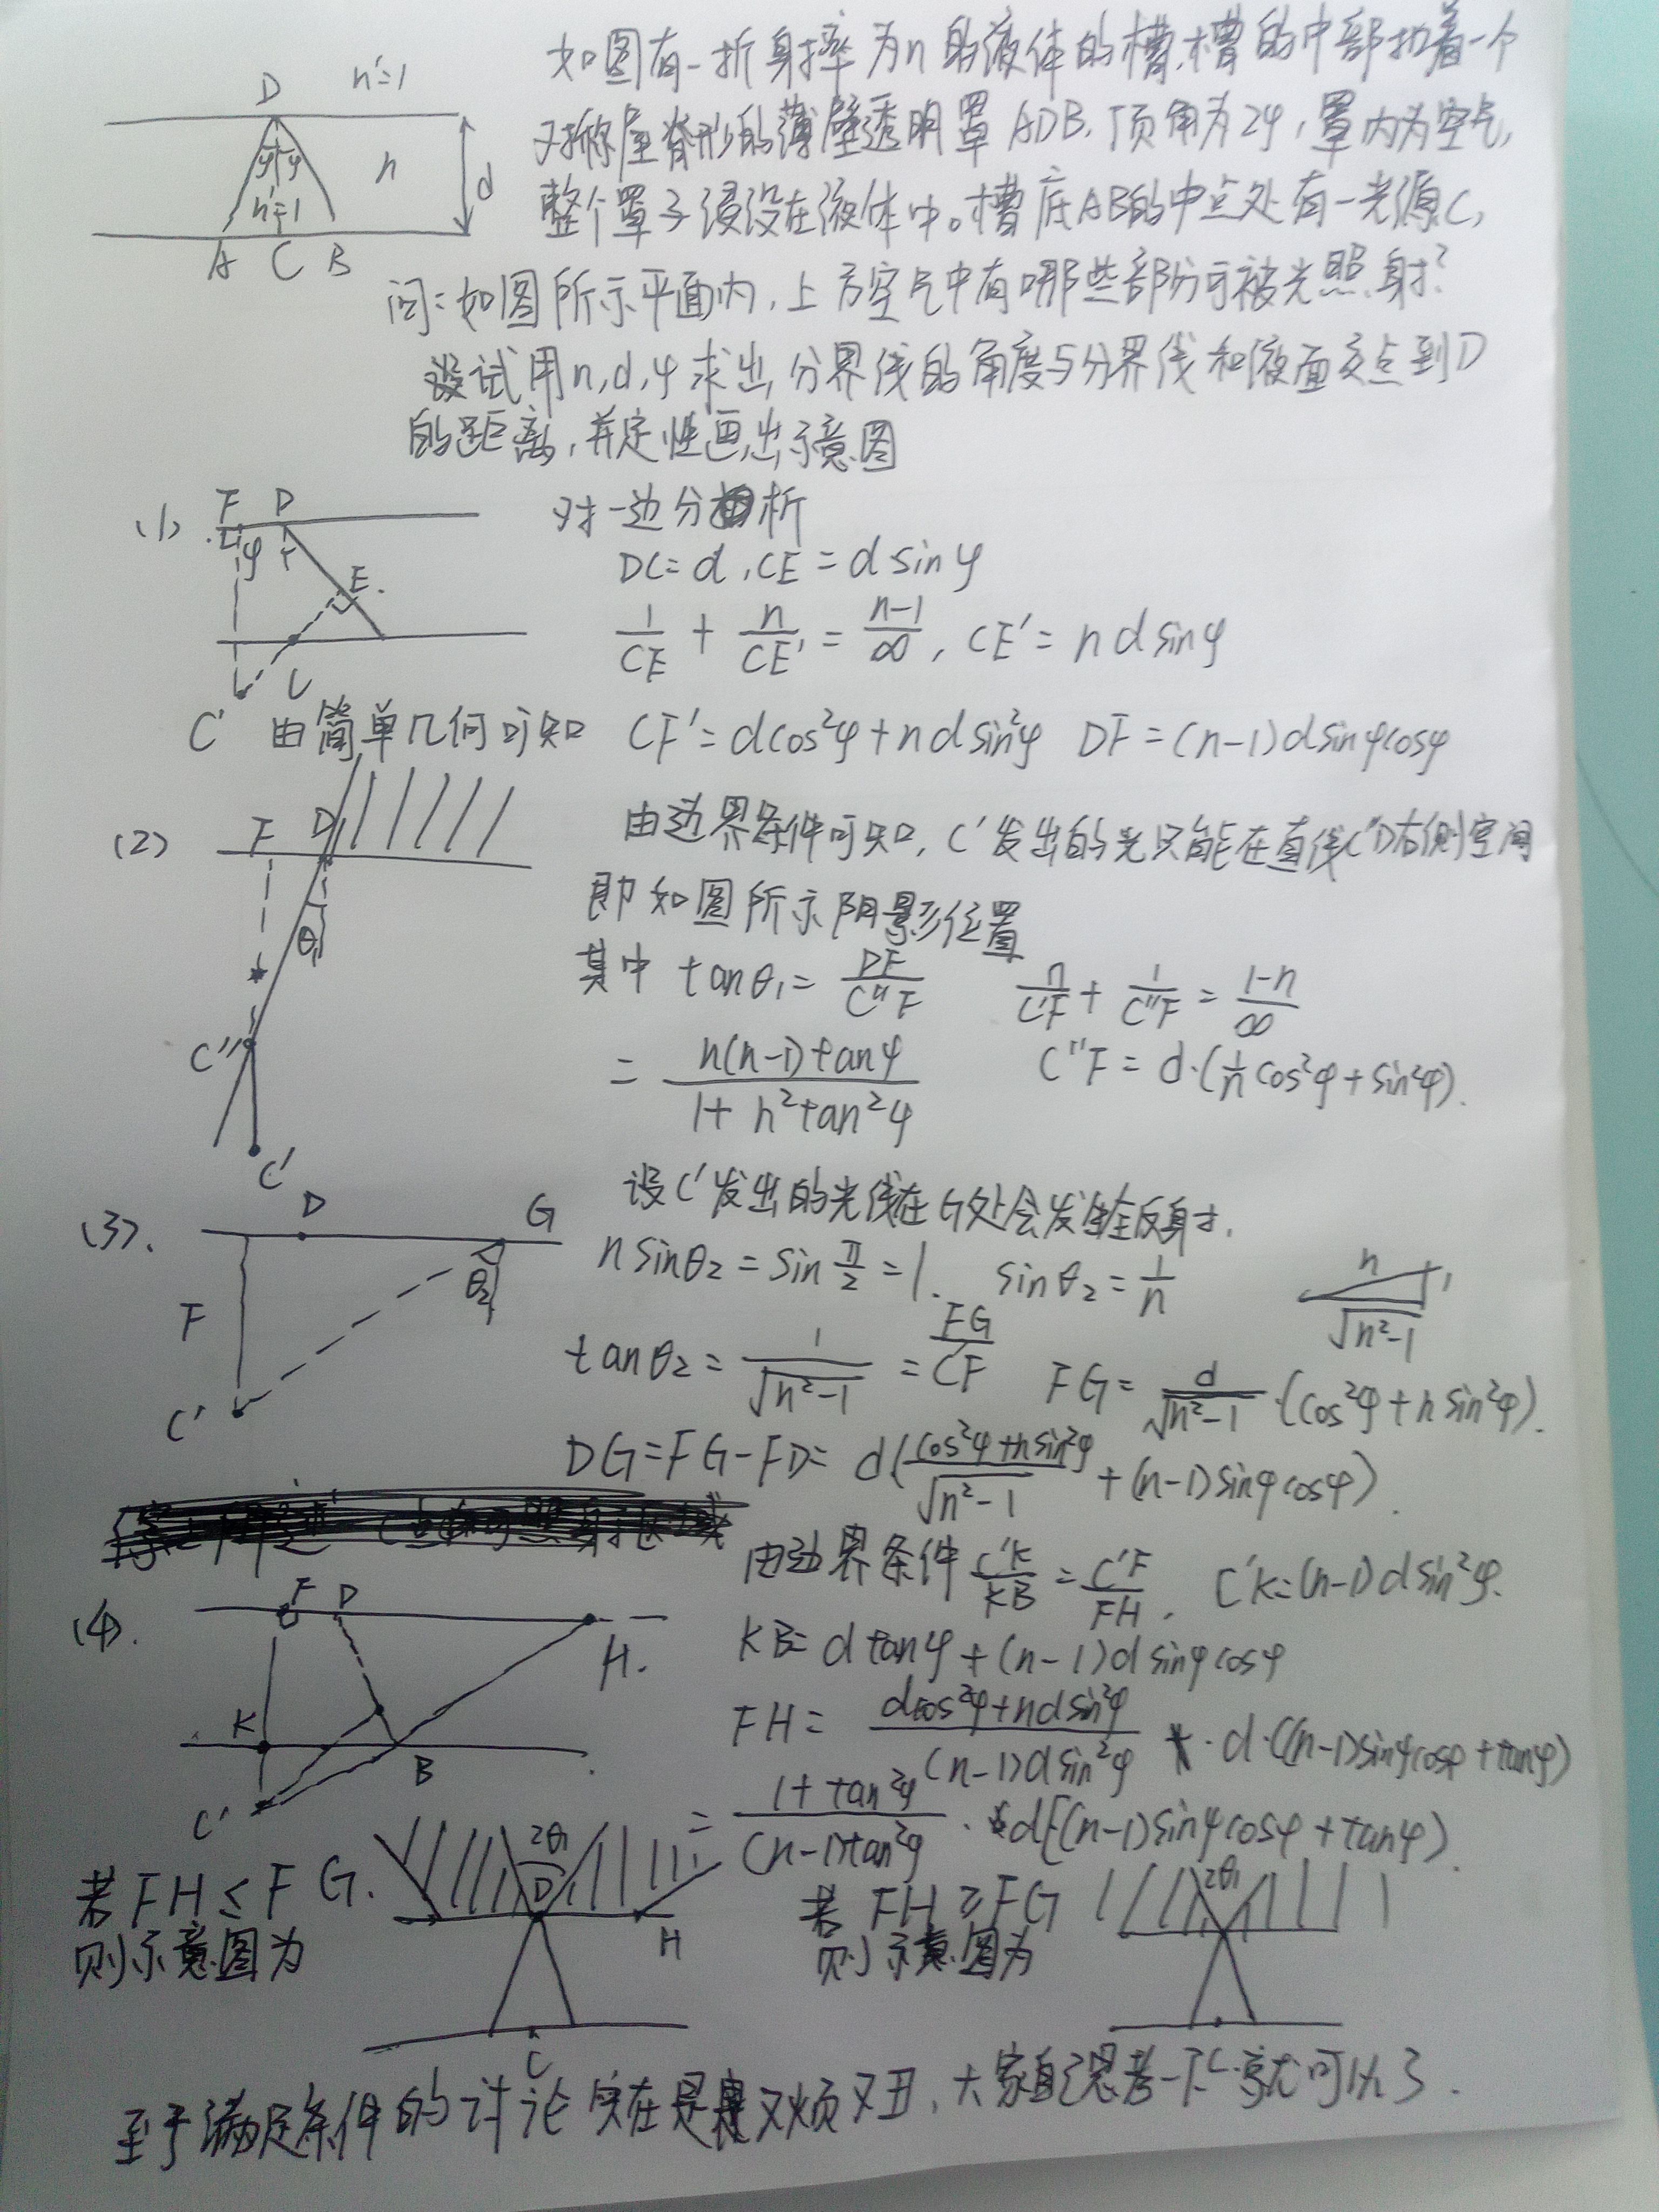 D n'=1
φ φ n d
n'=1
A C B
如图有一折射率为n的液体的槽,槽的中部扣着一个
对称屋脊形的薄壁透明罩ADB,顶角为2φ,罩内为空气,
整个罩子浸没在液体中。槽底AB的中点处有一光源C,
问:如图所示平面内,上方空气中有哪些部分可被光照射?
试用n,d,φ求出分界线的角度与分界线和液面交点到D
的距离,并定性画出示意图
(1) F D 对一边分析
φ E DC=d,CE=dsinφ
1/CE + n/CE' = (n-1)/∞, CE'=ndsinφ
C
C' 由简单几何可知 CF'=dcos²φ+ndsin²φ DF=(n-1)dsinφcosφ
(2) F D 由边界条件可知,C'发出的光只能在直线C''D右侧空间
θ₁ 即如图所示阴影位置
其中 tanθ₁=DF/C''F n/C'F + 1/C''F = (1-n)/∞
C'' = n(n-1)tanφ/(1+n²tan²φ) C''F=d·(1/n cos²φ+sin²φ).
C'
设C'发出的光线在G处会发生全反射.
(3). D G nsinθ₂=sin π/2=1. sinθ₂=1/n n 1 √(n²-1)
F θ₂ tanθ₂=1/√(n²-1)=FG/CF FG=d/√(n²-1)·(cos²φ+nsin²φ).
C' DG=FG-FD=d((cos²φ+nsin²φ)/√(n²-1)+(n-1)sinφcosφ).
由边界条件 C'K/KB=C'F/FH, C'K=(n-1)dsin²φ.
(4). F D H. KB=dtanφ+(n-1)dsinφcosφ
K B FH=(dcos²φ+ndsin²φ)/((n-1)dsin²φ)·d·((n-1)sinφcosφ+tanφ)
C' =(1+tan²φ)/((n-1)tan²φ)·d[(n-1)sinφcosφ+tanφ).
若FH≤FG. 2θ₁ D H 若FH≥FG 2θ₁
则示意图为 C 则示意图为 C
至于满足条件的讨论实在是又烦又丑,大家自己思考一下就可以了.